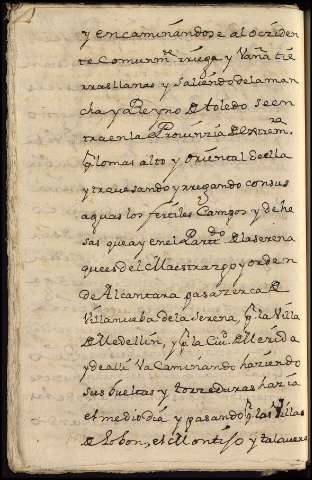 y encaminandose al ocçiden
te Comunmte. rriega y Vaña tie
rras llanas y saliendo de la man
cha y Reyno de toledo se en
tra en la Provinzia de Extremra.
plo mas alto y oriental de ella
y travesando y rregando con sus
aguas los fertiles Campos y dehe
sas que ay en el Partido de la serena
que es del Maestrazgo y orden
de Alcantara pasa zerca de
Villanueba de la Serena, pr. la Villa
de Medellin, y pr. la Ciud. de Merida
y de alli Va Caminando haziendo
sus bueltas y torzeduras hazia
el medio dia y pasando pr. las Villas
de Lobon, el Montijo y talavera